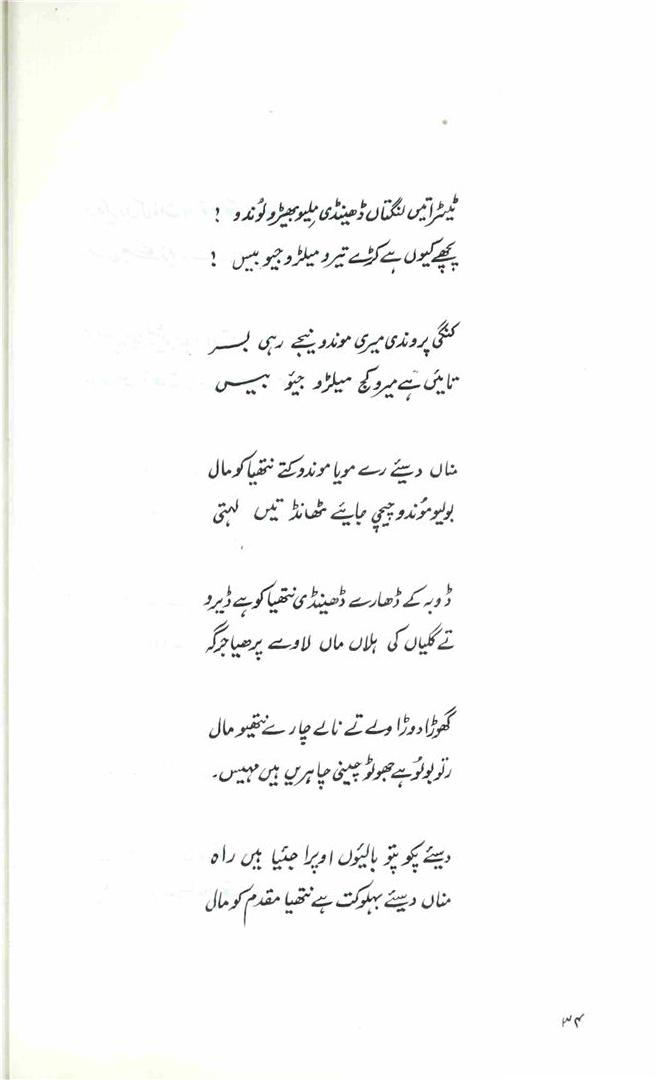 ٹینٹرا تیں لنگتاں ڈھینڈی مِلیو بھیڑو لُوندو !
پچھے کیوں ہے کڑے تیرو میلڑو جیو بیس !
کنگی پروندی میری موندو نیجے رہی بسر
تایئں ہے میرو کج میلڑو جیئو بیس
مناں دسیئے رے مویا موندو کتے نتھیا کو مال
بولیو مُوندو چیچی جایئے ٹھانڈ تیں لہتی
ڈوبہ کے ڈھارے ڈھینڈی نتھیا کو ہے ڈیرو
تے گلیاں کی ہلاں ماں لاوے پرھیا جرگہ
گھوڑا دوڑاوے تے نالے چارے نتھیو مال
رتو بولُو ہے جھولو چینی چاہریں ہیں مہیس۔
دسیئے پکو پتو بالیؤں اوپرا جئیا ہیں راہ
مناں دسیئے بہلو کت ہے نتھیا مقدم کو مال
۳۴